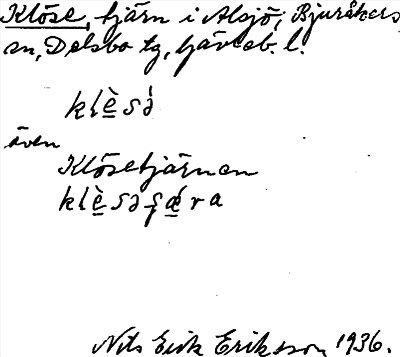 Klöse, tjärn i Alsjö, Bjuråkers
sn, Delsbo tg, Gävleb. l.
klè̱sə́
även
Klösetjärnen
klè̱səʂǽ̱ra
Nils Eirk Eriksson 1936.